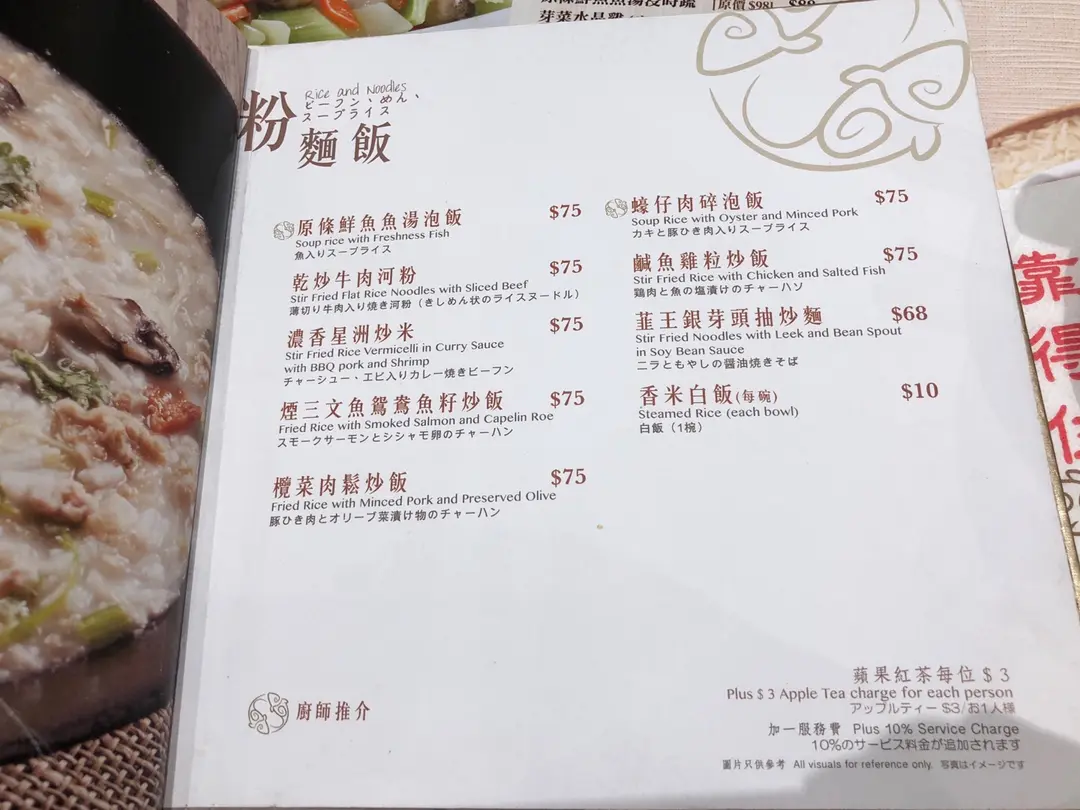 原條鮮魚魚湯浸時蔬
原價 $98
$88
芽菜水晶雞
Rice and Noodles
ビーフン、めん、
スープライス
粉
麵飯
原條鮮魚魚湯泡飯 $75
Soup rice with Freshness Fish
魚入りスープライス
乾炒牛肉河粉 $75
Stir Fried Flat Rice Noodles with Sliced Beef
薄切り牛肉入り焼き河粉（きしめん状のライスヌードル）
濃香星洲炒米 $75
Stir Fried Rice Vermicelli in Curry Sauce
with BBQ pork and Shrimp
チャーシュー・エビ入りカレー焼きビーフン
煙三文魚鴛鴦魚籽炒飯 $75
Fried Rice with Smoked Salmon and Capelin Roe
スモークサーモンとシシャモ卵のチャーハン
欖菜肉鬆炒飯 $75
Fried Rice with Minced Pork and Preserved Olive
豚ひき肉とオリーブ菜漬け物のチャーハン
蠔仔肉碎泡飯 $75
Soup Rice with Oyster and Minced Pork
カキと豚ひき肉入りスープライス
鹹魚雞粒炒飯 $75
Stir Fried Rice with Chicken and Salted Fish
鶏肉と魚の塩漬けのチャーハソ
韮王銀芽頭抽炒麵 $68
Stir Fried Noodles with Leek and Bean Spout
in Soy Bean Sauce
ニラともやしの醤油焼きそば
香米白飯(每碗) $10
Steamed Rice (each bowl)
白飯（1椀）
廚師推介
蘋果紅茶每位 $ 3
Plus $ 3 Apple Tea charge for each person
アップルティー $3/お1人様
加一服務費 Plus 10% Service Charge
10%のサービス料金が追加されます
圖片只供參考 All visuals for reference only. 写真はイメージです
靠
得
住